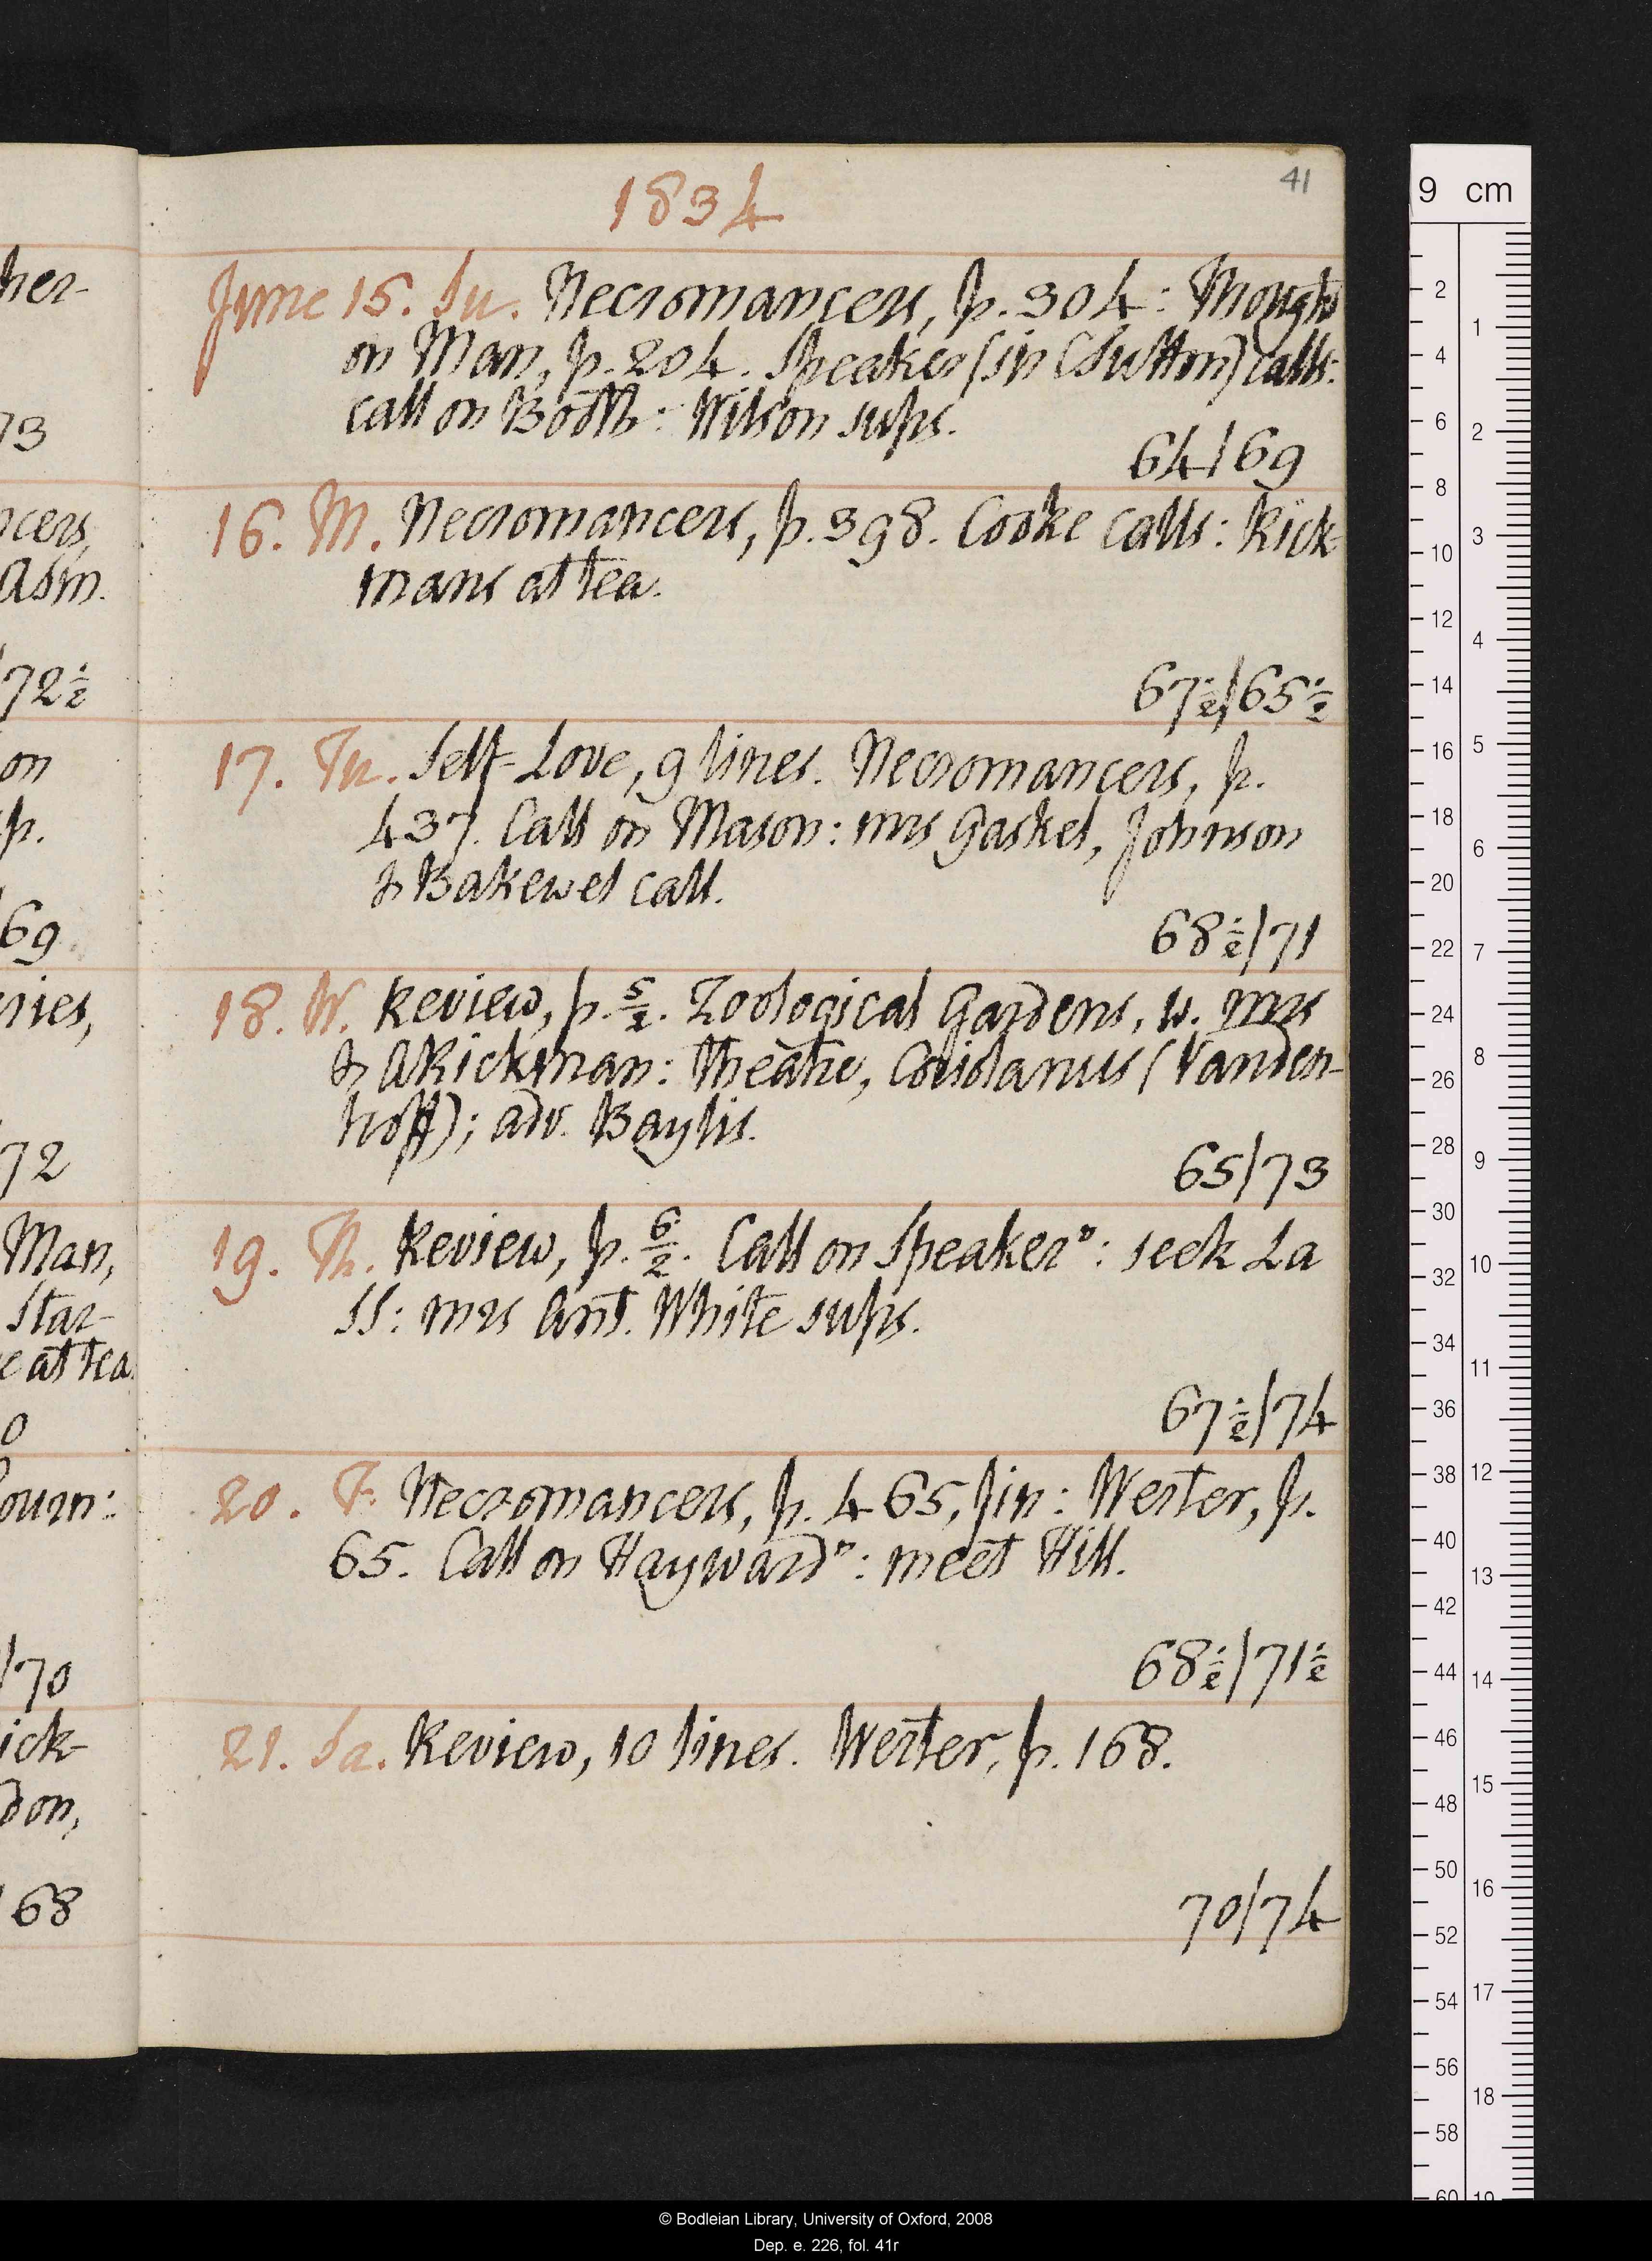 41
1834
June 15. Su. Necromancers, p. 304: Thoughts
on Man, p. 204. Speaker (Sir C Sutton) calls:
call on Booth: Wilson sups.
64/69
16. M. Necromancers, p. 398. Cooke calls: Rick-
mans at tea.
67½/65½
17. Tu. Self-Love, 9 lines. Necromancers, p.
437. Call on Mason: mrs Gaskel, Johnson
& Bakewel call.
68½/71
18. W. Review, p. 5/2. Zoological Gardens, w. mrs
& Rickman: theatre, Coriolanus (Vanden-
hoff); adv. Baylis.
65/73
19. Th. Review, p. 6/2. Call on Speaker n: seek La
SS: mrs Ant. White sups.
67½/74
20. F. Necromancers, p. 465, fin: Werter, p.
65. Call on Hayward n: meet Hill.
68½/71½
21. Sa. Review, 10 lines. Werter, p. 168.
70/74
her-
73
ncers,
asm.
72½
on
p.
69
ries,
72
Man,
Star-
e at tea.
0
ourn:
/70
ick-
don,
68
9 cm
2
4
6
8
10
12
14
16
18
20
22
24
26
28
30
32
34
36
38
40
42
44
46
48
50
52
54
56
58
60
1
2
3
4
5
6
7
8
9
10
11
12
13
14
15
16
17
18
19
© Bodleian Library, University of Oxford, 2008
Dep. e. 226, fol. 41r